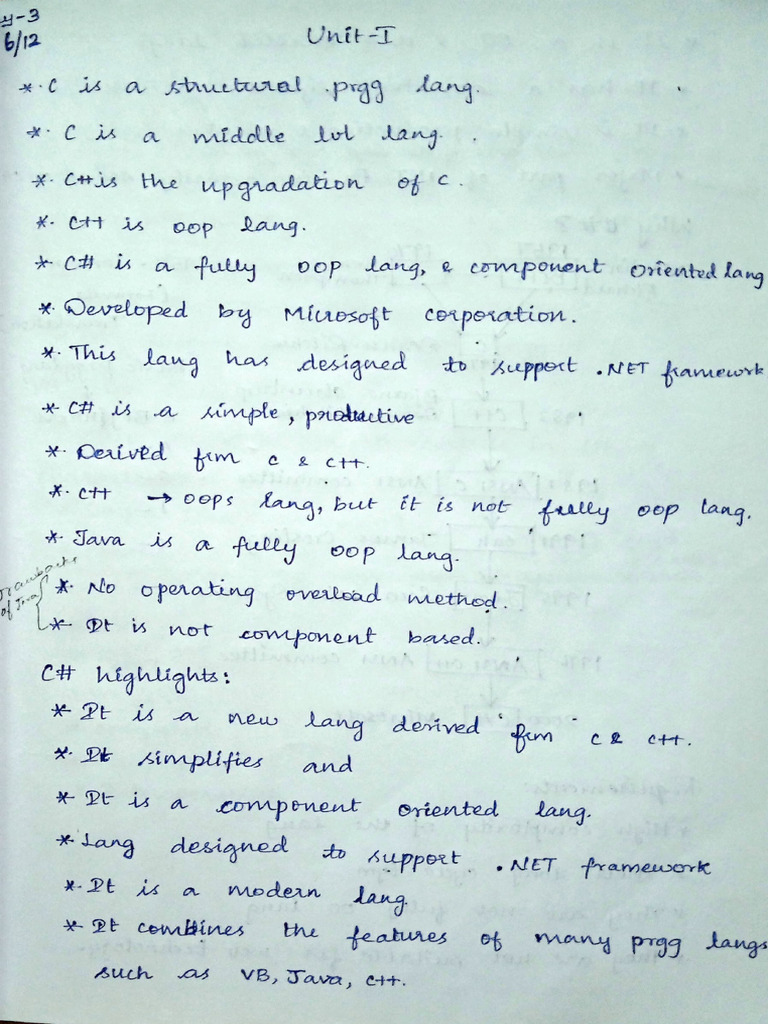 -3
6/12
Unit-I
* C is a structural prgg lang.
* C is a middle lvl lang.
* C++ is the upgradation of C.
* C++ is oop lang.
* C# is a fully oop lang, & component oriented lang
* Developed by Microsoft corporation.
* This lang has designed to support .NET framework
* C# is a simple, productive
* Derived frm c & c++.
* C++ → oops lang, but it is not fully oop lang.
* Java is a fully oop lang.
Drawbacks of Java
* No operating overload method.
* It is not component based.
C# highlights:
* It is a new lang derived frm c & c++.
* It simplifies and
* It is a component oriented lang.
* Lang designed to support .NET framework
* It is a modern lang.
* It combines the features of many prgg langs
such as VB, Java, c++.